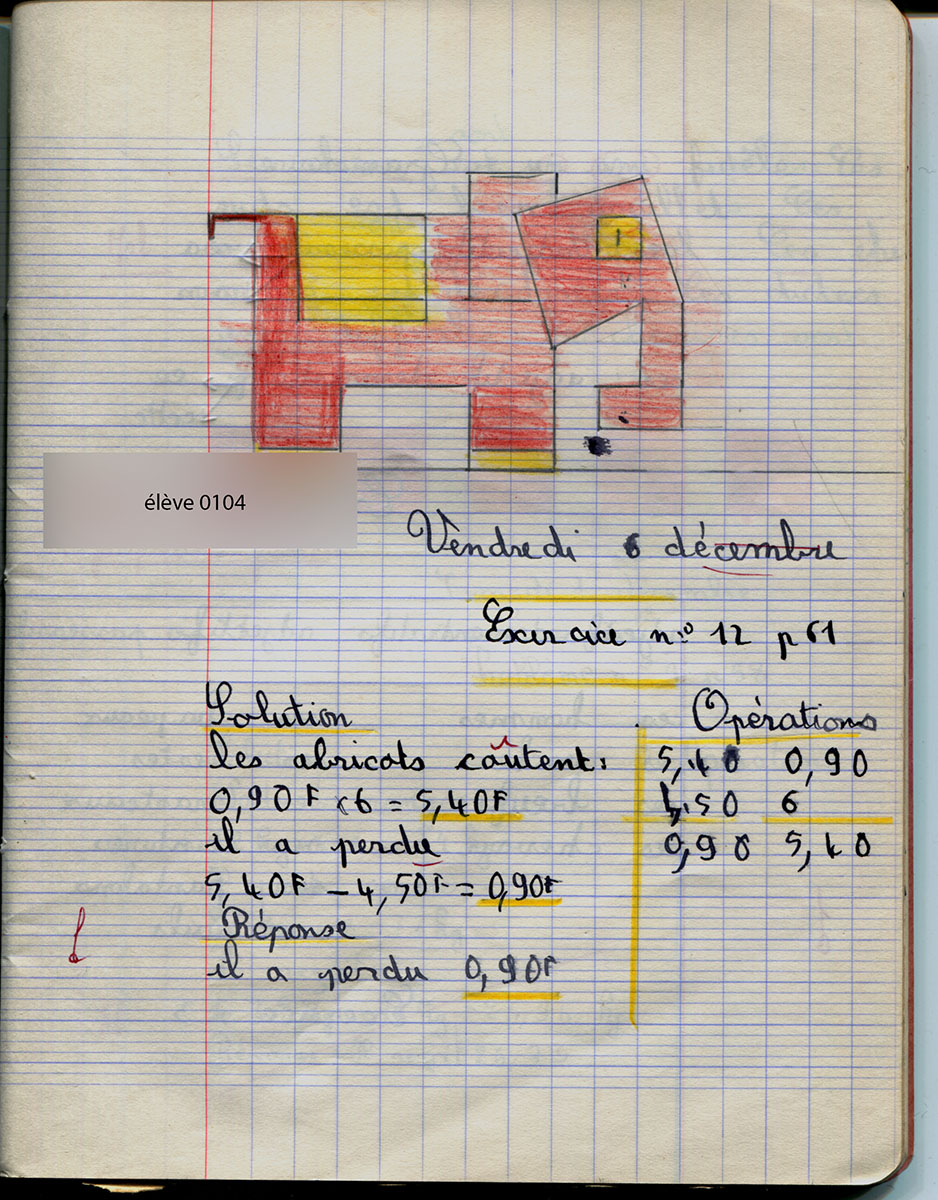 élève 0104
Vendredi 6 décembre
Exercice n° 12 p 61
Solution
les abricots coûtent:
0,90F × 6 = 5,40F
il a perdu
5,40F - 4,50F = 0,90F
Réponse
il a perdu 0,90F
Opérations
5,40 0,90
4,50 6
0,90 5,40